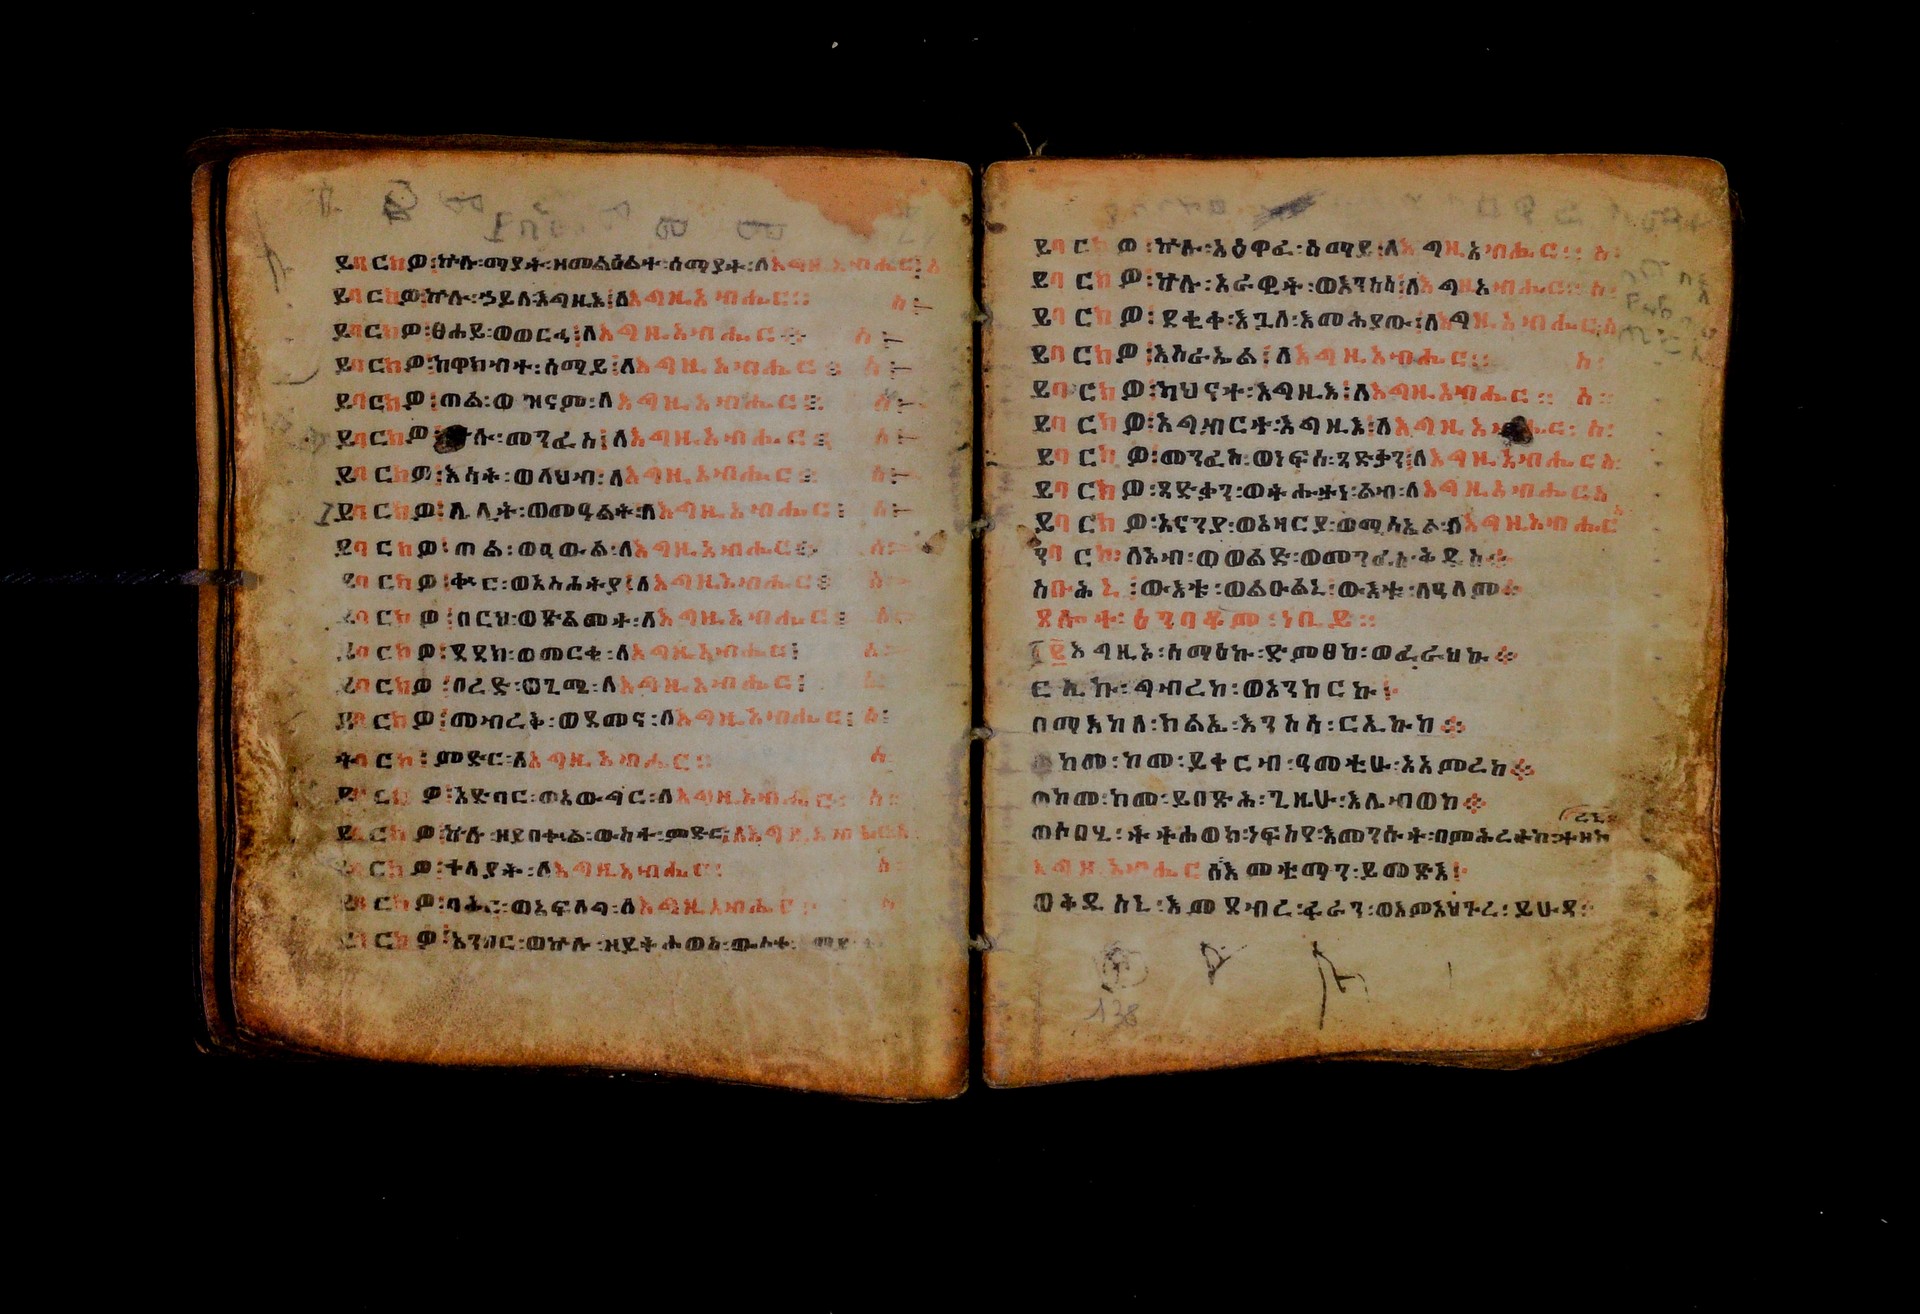 ይባርክዎ፡ኵሉ፡ማያት፡ዘመልዕልተ፡ሰማያት፡ለእግዚአብሔር፡ስ
ይባርክዎ፡ኵሉ፡ኃይለ፡እግዚእ፡ለእግዚአብሔር፡፡ ስ
ይባርክዎ፡ፀሐይ፡ወወርኃ፡ለእግዚአብሔር፡፡ ስ
ይባርክዎ፡ከዋክብተ፡ሰማይ፡ለእግዚአብሔር፡፡ ስ
ይባርክዎ፡ጠል፡ወዝናም፡ለእግዚአብሔር፡፡ ስ
ይባርክዎ፡ ሉ፡መንፈስ፡ለእግዚአብሔር፡፡ ስ
ይባርክዎ፡እሳት፡ወላህብ፡ለእግዚአብሔር፡፡ ስ
ይባርክዎ፡ሌሊት፡ወመዓልት፡ለእግዚአብሔር፡፡ ስ
ይባርክዎ፡ጠል፡ወ ውል፡ለእግዚአብሔር፡፡ ስ
ይባርክዎ፡ቍር፡ወአስሐትያ፡ለእግዚአብሔር፡፡ ስ
ይባርክዎ፡በርህ፡ወጽልመት፡ለእግዚአብሔር፡፡ ስ
ይባርክዎ፡ወመርቄ፡ለእግዚአብሔር፡ ስ
ይባርክዎ፡በረድ፡ወጊሜ፡ለእግዚአብሔር፡ ስ
ይባርክዎ፡መብረቅ፡ወደመና፡ለእግዚአብሔር፡ ስ
ትባርክ፡ምድር፡ለእግዚአብሔር፡፡ ስ
ይባርክዎ፡አድባር፡ወአውግር፡ለእግዚአብሔር፡፡ ስ
ይባርክዎ፡ኵሉ፡ዘይበቍል፡ውስተ፡ምድር፡ለእግዚአብሔር፡
ይባርክዎ፡ተላያት፡ለእግዚአብሔር፡ ስ
ይባርክዎ፡ባሕር፡ወአፍላግ፡ለእግዚአብሔር፡፡ ስ
ይባርክዎ፡አንበር፡ወኵሉ፡ዘይትሐወስ፡ውስተ፡ማይ
ይባርክዎ፡ኵሉ፡አዕዋፈ፡ሰማይ፡ለእግዚአብሔር፡፡ ስ፡
ይባርክዎ፡ኵሉ፡አራዊት፡ወእንስሳ፡ለእግዚአብሔር፡፡ ስ፡
ይባርክዎ፡ደቂቀ፡እጓለ፡እመሕያው፡ለእግዚአብሔር፡ስ
ይባርክዎ፡እስራኤል፡ለእግዚአብሔር፡፡ ስ፡
ይባርክዎ፡ካህናተ፡እግዚእ፡ለእግዚአብሔር፡፡ ስ፡፡
ይባርክዎ፡አግብርተ፡እግዚእ፡ለእግዚአብሔር፡ ስ፡
ይባርክዎ፡መንፈስ፡ወነፍስ፡ጻድቃን፡ለእግዚአብሔር፡ስ
ይባርክዎ፡ጻድቃን፡ወትሑታነ፡ልብ፡ለእግዚአብሔር፡ስ
ይባርክዎ፡አናንያ፡ወአዛርያ፡ወሚሳኤል፡ለእግዚአብሔር
ንባርክ፡ለአብ፡ወወልድ፡ወመንፈስ፡ቅዱስ
ስቡሕኒ፡ውእቱ፡ወልዑልኒ፡ውእቱ፡ለዓለም
ጸሎተ፡ዕንባቆም፡ነቢይ፡፡
እግዚኦ፡ሰማዕኩ፡ድምፀከ፡ወፈራህኩ
ርኢኩ፡ግብረከ፡ወአንከርኩ፡
በማእከለ፡ክልኤ፡እንስሳ፡ርኢኩከ
ወከመ፡ከመ፡ይቀርብ፡ዓመቲሁ፡አአምረከ
ወከመ፡ከመ፡ይበጽሕ፡ጊዜሁ፡እሌብወከ
ወሶበሂ፡ትትሐወክ፡ነፍስየ፡እመንሱት፡በምሕረትከ፡ተዘከ
እግዚአብሔር ሰእመቴማን፡ይመጽእ፡
ወቅዱስኒ፡እምደብረ፡ፋራን፡ወእምአህጉረ፡ይሁዳ፡፡
138